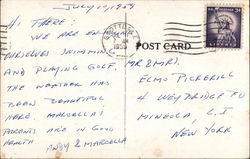 July 17, 1959
Hi There:
We are enjoying
ourselves swimming
and playing golf.
The weather has
been beautiful
here. Marcella's
parents are in good
health
Andy & Marcella
1959
POST CARD
3¢
Mr & Mrs.
Elmo Pickerill
4 Weybridge Rd
Mineola, L.I.
New York